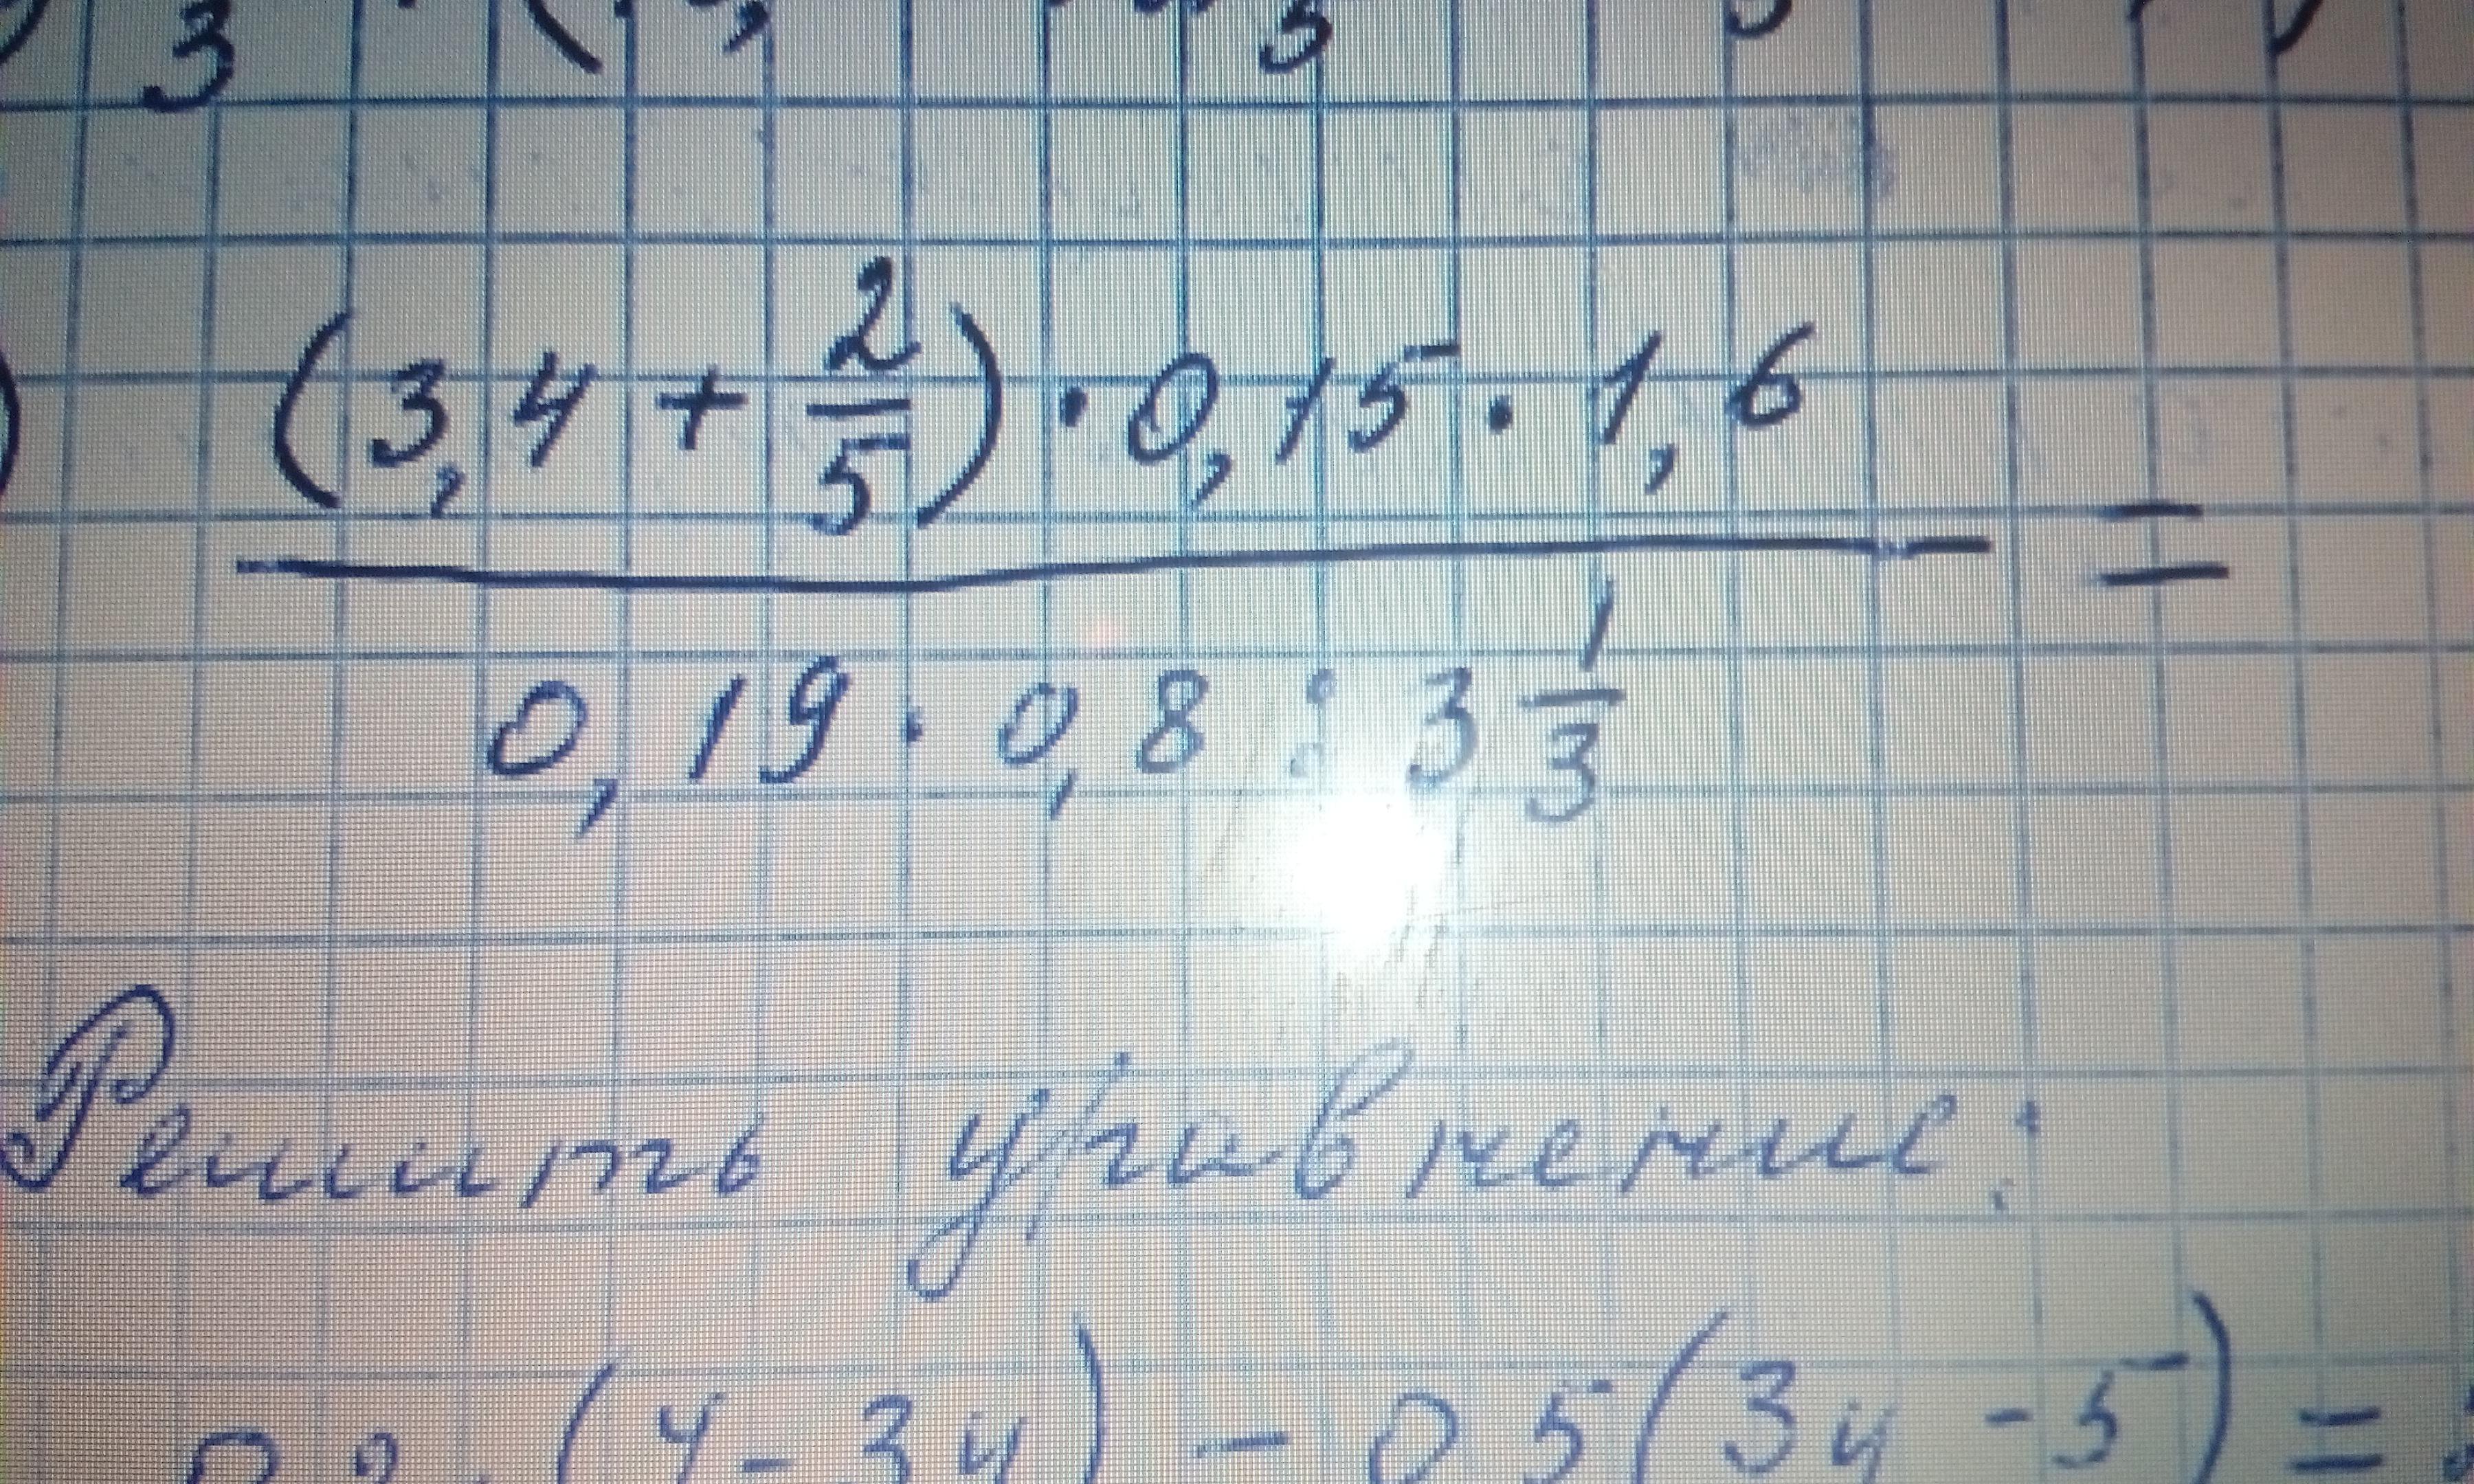 (3,4 + 2/5) · 0,15 · 1,6 =
0,19 · 0,8 : 3 1/3
Решить уравнение:
(4 - 3y) - 0,5(3y - 5) =